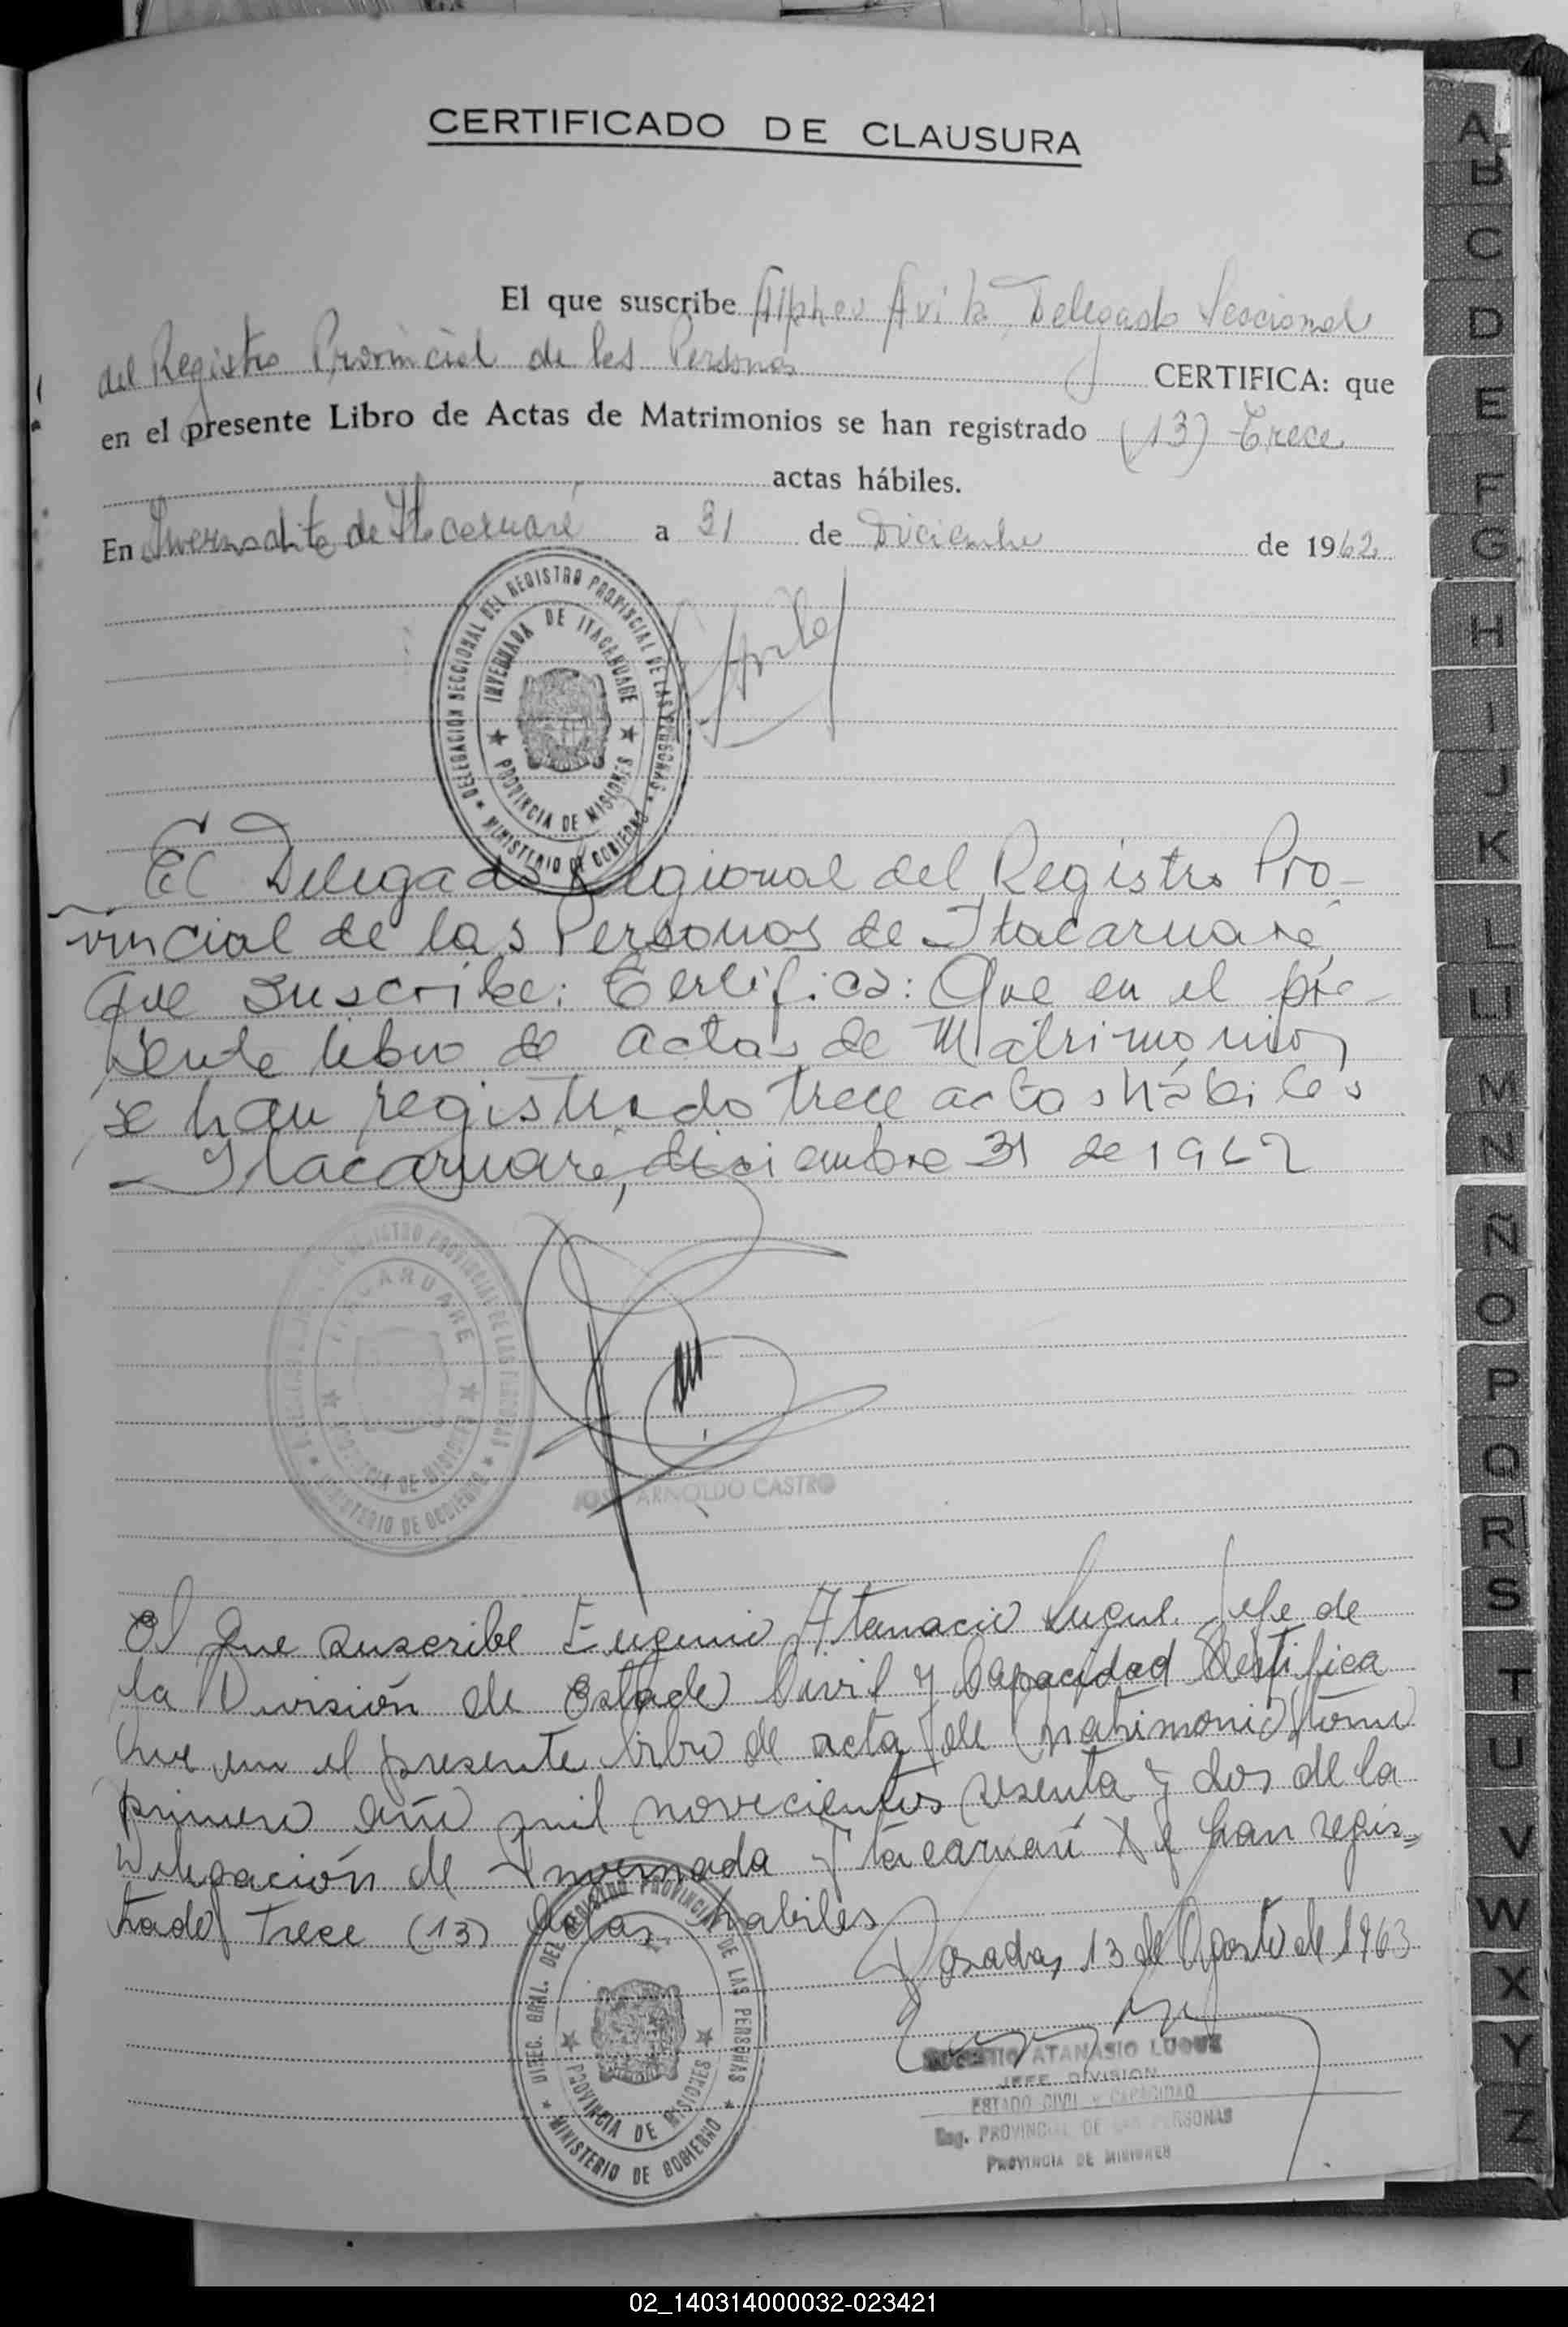 CERTIFICADO DE CLAUSURA
El que suscribe Alpheo Avila, Delegado Seccional
del Registro Provincial de las Personas CERTIFICA: que
en el presente Libro de Actas de Matrimonios se han registrado (13) Trece
actas hábiles.
En de Itacaruaré a 31 de Diciembre de 1962
DELEGACION SECCIONAL DEL REGISTRO PROVINCIAL DE LAS PERSONAS
INVERNADA DE ITACARUARE
PROVINCIA DE MISIONES
MINISTERIO DE GOBIERNO
El Delegado Regional del Registro Pro-
vincial de las Personas de Itacaruaré
que suscribe: Certifica: Que en el pre-
sente libro de actas de Matrimonios
se han registrado trece actas hábiles
Itacaruaré, diciembre 31 de 1962
REGISTRO PROVINCIAL DE LAS PERSONAS
ITACARUARE
PROVINCIA DE MISIONES
MINISTERIO DE GOBIERNO
JOSE ARNOLDO CASTRO
El que suscribe Eugenio Atanacio Luque Jefe de
la División de Estado Civil y Capacidad Certifica
que en el presente libro de acta de matrimonio tomo
primero año mil novecientos sesenta y dos de la
Delegación de Invernada Itacaruaré se han regis=
trado trece (13) actas habiles
Posadas, 13 de Agosto de 1963
DIREC. GRAL. DEL REGISTRO PROVINCIAL DE LAS PERSONAS
PROVINCIA DE MISIONES
MINISTERIO DE GOBIERNO
EUGENIO ATANASIO LUQUE
JEFE DIVISION
ESTADO CIVIL y CAPACIDAD
Reg. PROVINCIAL DE LAS PERSONAS
PROVINCIA DE MISIONES
A
B
C
D
E
F
G
H
I
J
K
L
LL
M
N
Ñ
O
P
Q
R
S
T
U
V
W
X
Y
Z
02_140314000032-023421